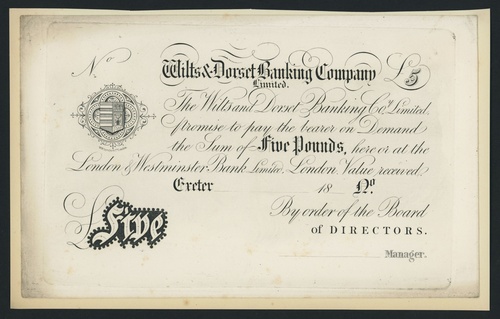 No
Wilts & Dorset Banking Company £5
Limited.
The Wilts and Dorset Banking Coy. Limited,
promise to pay the bearer on Demand
the Sum of Five Pounds, here or at the
London & Westminster Bank Limited, London Value received.
Exeter 18 No.
By order of the Board
of DIRECTORS.
£Five
Manager.